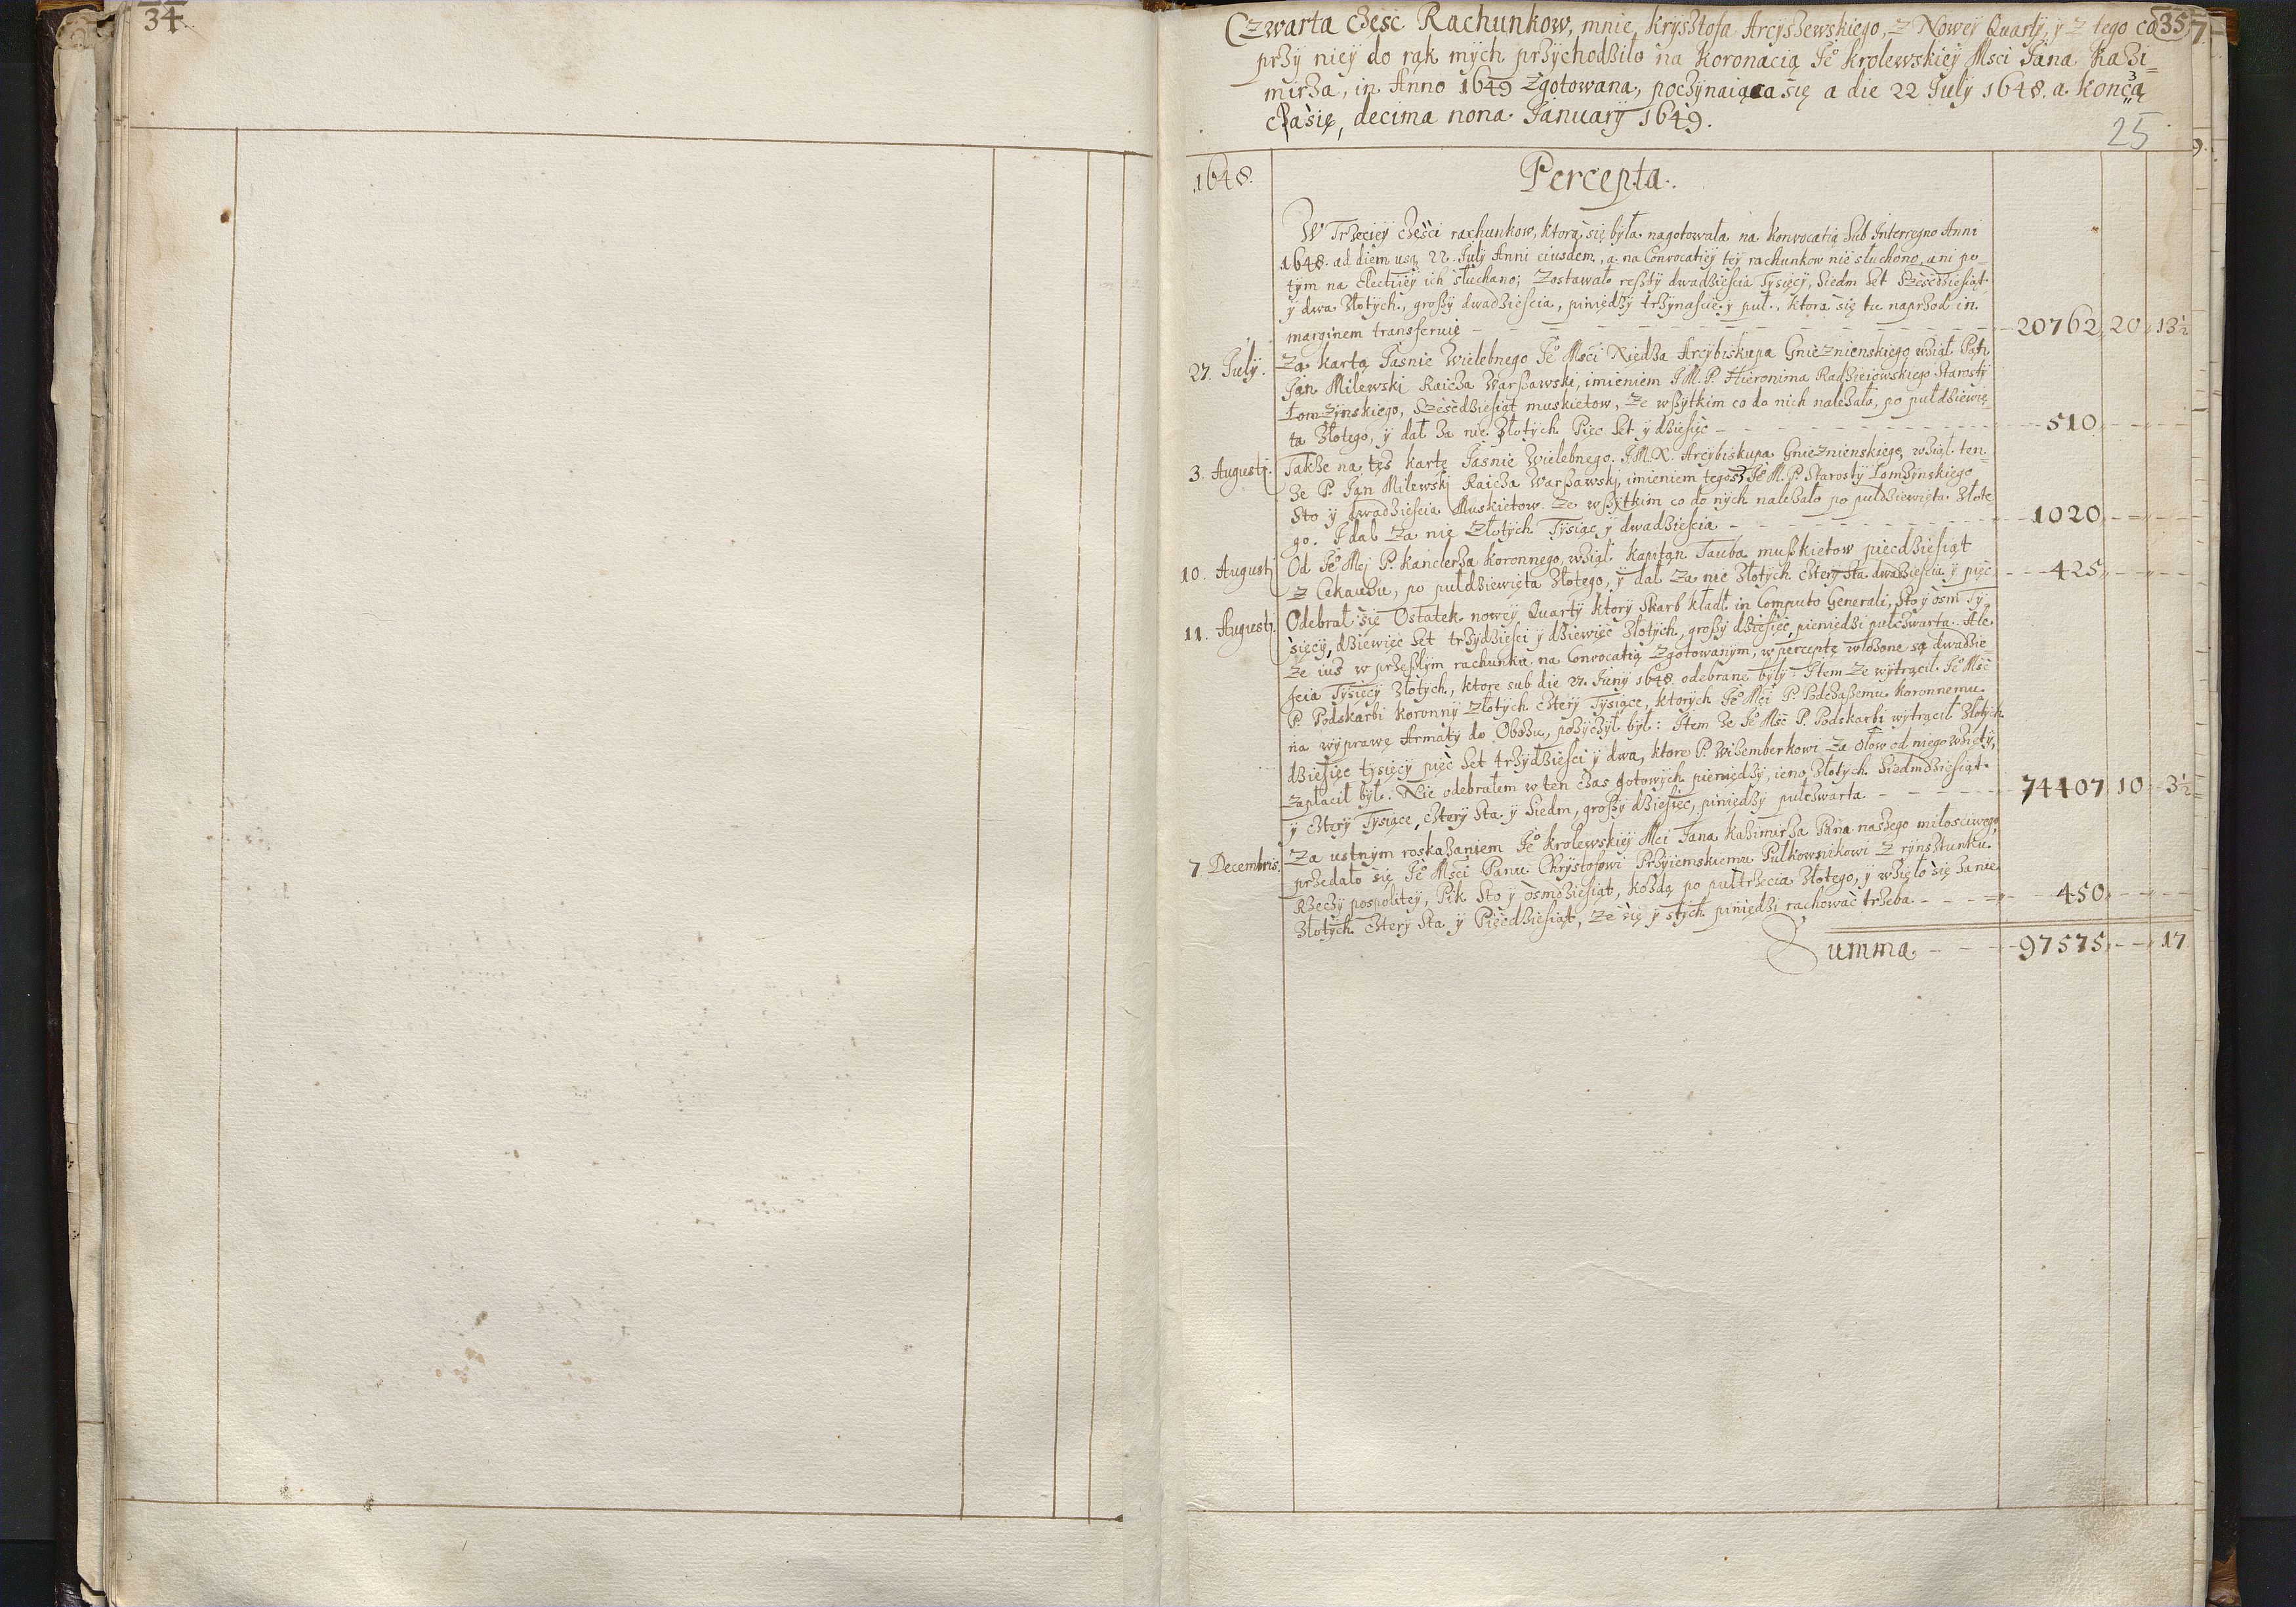 34.
Czwarta część Rachunkow, mnie, Krysztofa Arcyszewskiego, z Nowey Quarty, y z tego co 35
przy niey do rąk mych przychodziło na Koronacią Je° Krolewskiey Msci Jana Kazi=
mirza, in Anno 1649 zgotowana, poczynaiąca się a die 22 July 1648. a koncą
cza się, decima nona January 1649.
25
1648.
Percepta.
W Trzeciey części rachunkow, ktora się była nagotowała na Konvocatią Sub Interregno Anni
1648. ad diem usq 22. July Anni eiusdem, a na Convocatiey tey rachunkow nie słuchono, ani po=
tym na Electiiey ich słuchano; Zostawało reszty dwadziescia Tysięcy, Siedm Set Szescdziesiąt
y dwa Złotych, groszy dwadziescia, piniędzy trzynascie y puł, ktora się tu naprzod in
marginem transferuię 20762 20 13½
27. July. Za kartą Jasnie Wielebnego Je° Msci Xiędza Arcybiskupa Gnieznienskiego, wziął Pan
Jan Milewski Raicza Warszawski, imieniem J.M.P. Hieronima Radzieiowskiego Starosty
Łomzynskiego, Szescdziesiąt muskietow, ze wszytkim co do nich nalezało, po puł dziewię=
ta Złotego, y dał za nie Złotych Pięc Set y dziesięc 510
3. Augusti. Takze na tęz kartę Jasnie Wielebnego J.M.X. Arcybiskupa Gnieznienskiego, wziął ten=
ze P. Jan Milewski Raicza Warszawski, imieniem tegoz Je° M.P. Starosty Lomzynskiego
Sto y dwadziescia Muskietow ze wszytkim co do nych nalezało po puł dziewięta Złote
go. I dał za nie Złotych Tysiąc y dwadziescia 1020
10. Augusti Od Je° Mci P. Kanclerza Koronnego, wziął Kapitan Tauba muszkietow pięcdziesiąt
z Cekauzu, po puł dziewięta Złotego, y dał za nie Złotych cztery sta dwadziescia y pięc 425
11. Augusti. Odebrał się Ostatek nowey Quarty ktory Skarb kładł in Computo Generali, Sto y osm Ty=
sięcy, dziewięc Set trzydziesci y dziewięc Złotych, groszy dziesięc, pieniędzi pułczwarta. Ale
ze iuz w przeszłym rachunku na Convocatią zgotowanym, w perceptę włozone są dwadzie=
scia Tysięcy Złotych, ktore sub die 27. Juny 1648. odebrane były. Item ze wytrącił Je° Msc
P. Podskarbi Koronny Złotych cztery Tysiące, ktorych Je° Mci P. Podczaszemu Koronnemu
na wyprawę Armaty do Obozu, pozyczył był: Item ze Je° Msc P. Podskarbi wytrącił Złotych
dziesięc tysięcy pięc Set trzydziesci y dwa, ktore P. Wizemberkowi za ołow od niego wzięty,
zapłacił był. Nie odebrałem w ten czas gotowych pieniędzy, ieno Złotych Siedmdziesiąt
y cztery Tysiące, cztery Sta y Siedm, groszy dziesięc, piniędzy pułczwarta 74407 10 3½
7. Decembris. Za ustnym roskazaniem Je° Krolewskiey Mci Jana Kazimirza Pana naszego miłosciwego,
przedało się Je° Msci Panu Chrystofowi Przyiemskiemu Pułkownikowi z rynsztunku
Rzeczy pospolitey, Pik Sto y osmdziesiąt, kozdą po puł trzecia Złotego, y wzięło się za nie
Złotych cztery Sta y Pięcdziesiąt, ze się y stych piniędzi rachować trzeba 450
Summa 97575 17